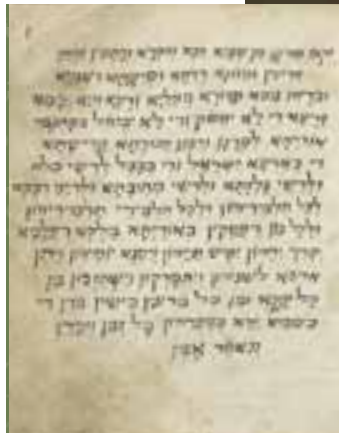 יקום פורקן מן שמיא חנא וחסדא ורחמין וחיין
אריכין ומזוני רויחא וסייעתא דשמיא
גופא ונהורא מעליא זרעא
זרעא די לא יפסוק ודי לא יבטול מפתגמי
אורייתא למרנן ורבנן חבורתא קדישתא
די בארעא ישראל ודי בבבל לרישי כלה
ולרישי גלותא ולרישי מתיבתא ולדייני דבבא
לכל תלמידיהון ולכל תלמידי תלמידיהון
ולכל מן דעסקין באורייתא מלכא דעלמא
יברך יתהון יפיש חייהון ויסגא יומיהון ויתן
ארכא לשניהון ויתפרקון וישתזבון מן
כל עקא ומן כל מרעין בישין מרן די
בשמיא יהא בסעדהון כל זמן ועידן
ונאמר אמן